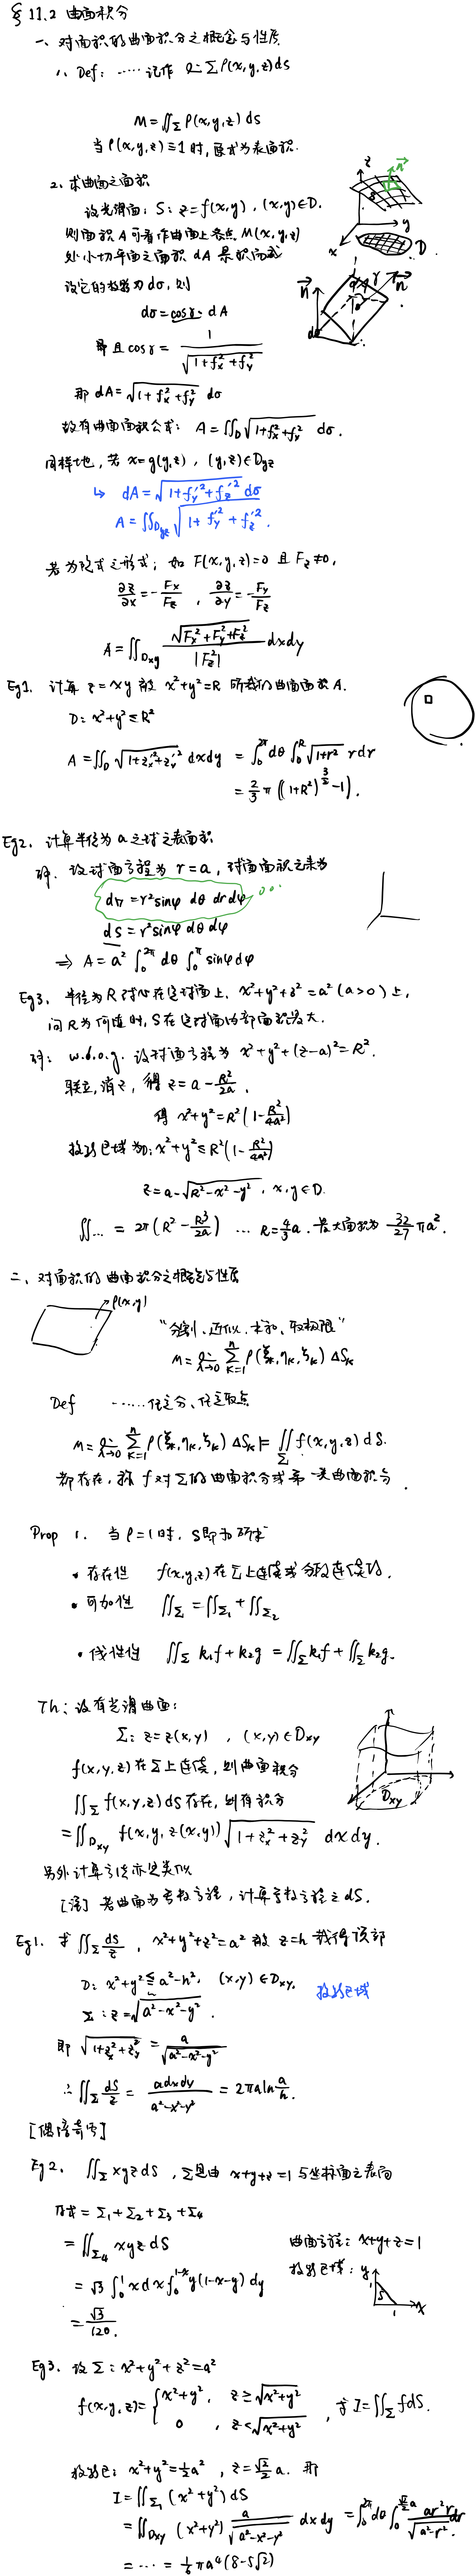 § 11.2 曲面积分
一、对面积的曲面积分之概念与性质
1. Def: ...... 记作 Σρ(x,y,z)ds
M=∬_Σ ρ(x,y,z) ds
当 ρ(x,y,z)≡1 时, 为表面积.
2. 求曲面之面积
设光滑面: S: z=f(x,y), (x,y)∈D.
则面积 A 可看作曲面上各点 M(x,y,z)
处小切平面之面积 dA 累积而成
设它的投影为 dσ, 则
dσ=cosγ·dA
且 cosγ = 1/√(1+f_x²+f_y²)
即 dA=√(1+f_x²+f_y²) dσ
故有曲面面积公式: A=∬_D √(1+f_x²+f_y²) dσ.
同样地, 若 x=g(y,z), (y,z)∈D_yz
↳ dA=√(1+f_y'²+f_z'²) dσ
A=∬_{D_yz} √(1+f_y'²+f_z'²).
若为隐式之形式; 如 F(x,y,z)=0 且 F_z≠0,
∂z/∂x=-F_x/F_z , ∂z/∂y=-F_y/F_z
A=∬_{D_xy} √(F_x²+F_y²+F_z²)/|F_z| dxdy
Eg1. 计算 z=xy 被 x²+y²=R 所截的曲面面积 A.
D: x²+y²≤R²
A=∬_D √(1+z_x'²+z_y'²) dxdy = ∫_0^{2π} dθ ∫_0^R √(1+r²) rdr
= 2/3 π((1+R²)^{3/2}-1).
Eg2. 计算半径为 a 之球之表面积
解. 设球面方程为 r=a, 球面面积元素为
dv=r²sinφ dθ dr dφ
dS=r²sinφ dθ dφ
⇒ A=a² ∫_0^{2π} dθ ∫_0^π sinφ dφ
Eg3. 半径为 R 球心在定球面上. x²+y²+z²=a² (a>0) 上,
问 R 为何值时, S在定球面内部面积最大.
解: w.l.o.g. 设球面方程为 x²+y²+(z-a)²=R².
联立, 消之, 得 z=a-R²/2a.
得 x²+y²=R²(1-R²/4a²)
投影区域为D: x²+y²≤R²(1-R²/4a²)
z=a-√(R²-x²-y²), x,y∈D.
∬... = 2π(R²-R³/2a) ... R=4/3 a. 最大面积为 32/27 πa².
二、对面积的曲面积分之概念与性质
ρ(x,y)
“分割、近似、求和、取极限”
M=lim_{λ→0} Σ_{k=1}^n ρ(ξ_k,η_k,ζ_k) ΔS_k
Def ...... 任意分、任意取点
M=lim_{λ→0} Σ_{k=1}^n ρ(ξ_k,η_k,ζ_k) ΔS_k = ∬_Σ f(x,y,z) dS.
都存在, 称 f 对Σ的曲面积分或第一类曲面积分.
Prop 1. 当 ρ=1 时, S即为所求
• 存在性 f(x,y,z) 在 Σ 上连续或分段连续.
• 可加性 ∬_Σ=∬_{Σ1}+∬_{Σ2}
• 线性性 ∬_Σ k₁f+k₂g = ∬_Σ k₁f+∬_Σ k₂g.
Th: 设有光滑曲面:
Σ: z=z(x,y) , (x,y)∈D_xy
f(x,y,z) 在Σ上连续, 则曲面积分
∬_Σ f(x,y,z) dS 存在, 则有积分
=∬_{D_xy} f(x,y,z(x,y)) √(1+z_x²+z_y²) dxdy.
D_xy
另外计算方法亦是类似
[注] 若曲面为参数方程, 计算参数方程之dS.
Eg1. 求 ∬_Σ dS/z , x²+y²+z²=a² 被 z=h 截得顶部
D: x²+y²≤a²-h², (x,y)∈D_xy. 投影区域
Σ: z=√(a²-x²-y²).
即 √(1+z_x²+z_y²)=a/√(a²-x²-y²)
∴ ∬_Σ dS/z = adxdy/(a²-x²-y²) = 2πaln a/h.
[偶倍奇零]
Eg2. ∬_Σ xyzdS , Σ是由 x+y+z=1 与坐标面之表面
原式=Σ₁+Σ₂+Σ₃+Σ₄
=∬_{Σ4} xyz dS
曲面方程: x+y+z=1
=√3 ∫_0^1 xdx ∫_0^{1-x} y(1-x-y) dy
投影区域:
=√3/120.
Eg3. 设Σ: x²+y²+z²=a²
f(x,y,z)={x²+y², z≥√(x²+y²)
0 , z<√(x²+y²) , 求 I=∬_Σ fdS.
投影: x²+y²=½a² , z=√2/2 a. 即
I=∬_{Σ1} (x²+y²) dS
=∬_{D_xy} (x²+y²) a/√(a²-x²-y²) dxdy = ∫_0^{2π} dθ ∫_0^{√2/2 a} ar²·r/√(a²-r²) dr
= ... = 1/6 πa⁴(8-5√2)